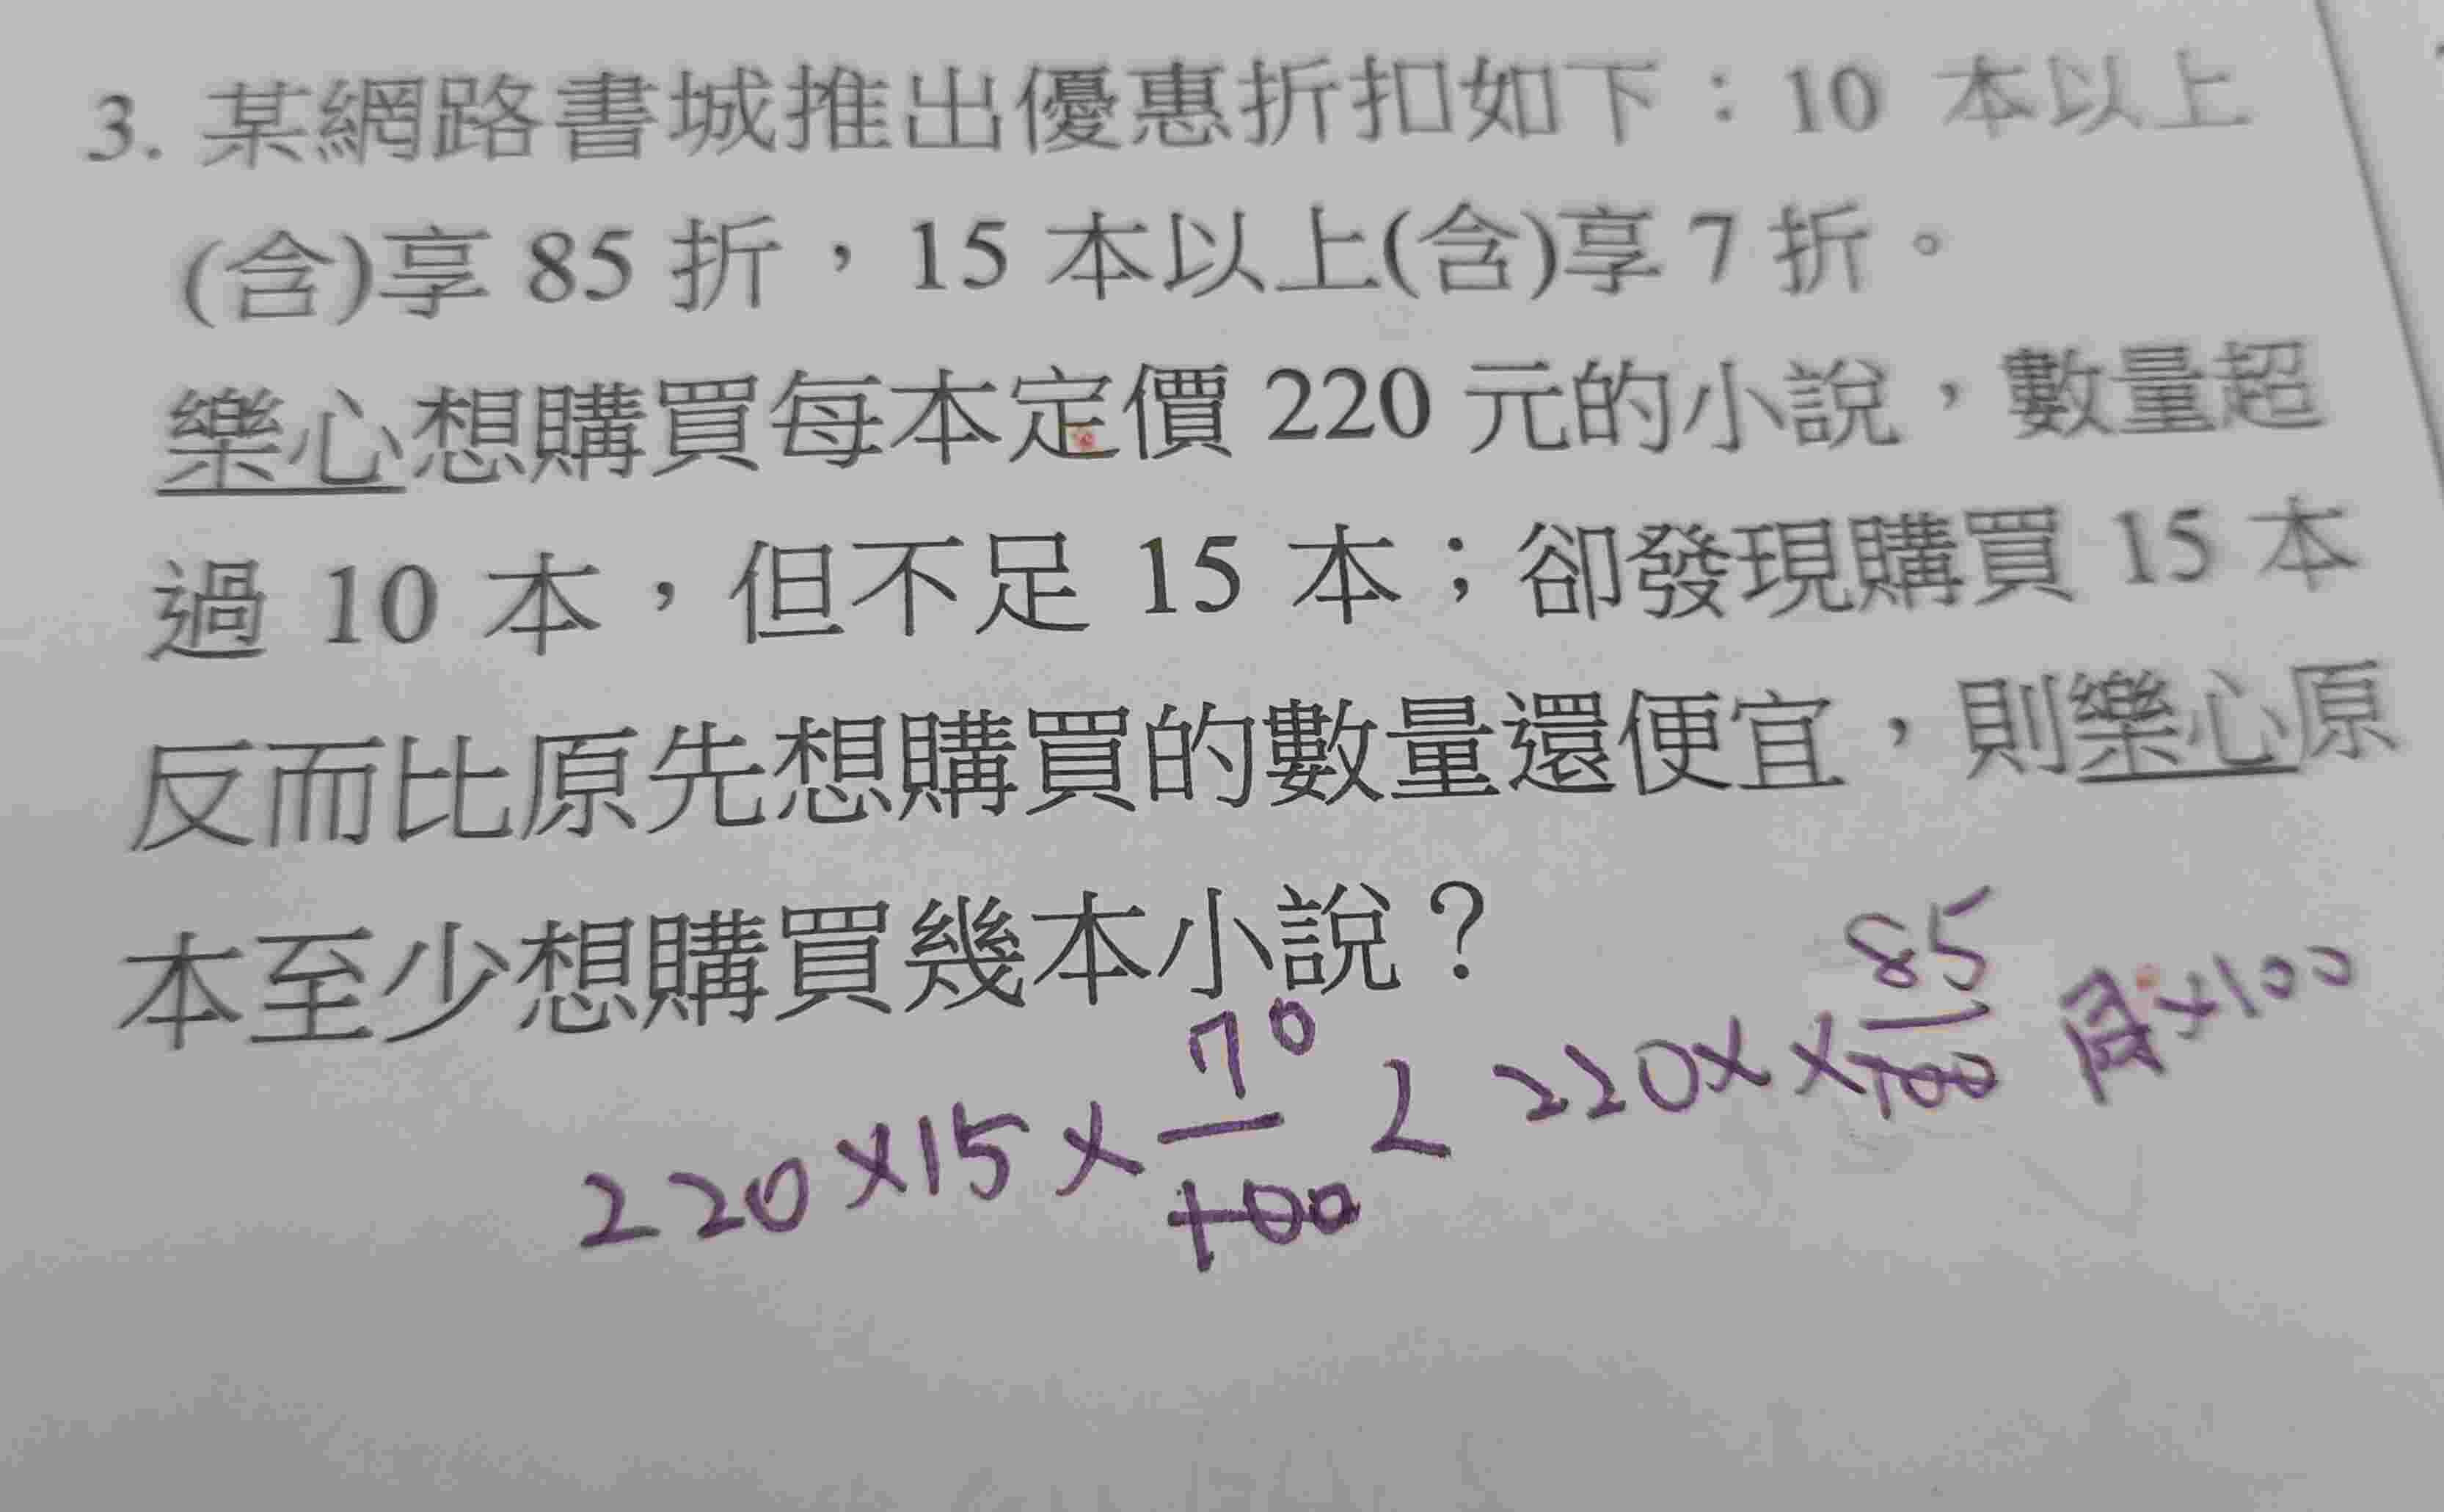 3. 某網路書城推出優惠折扣如下：10 本以上
(含)享 85 折，15 本以上(含)享 7 折。
樂心想購買每本定價 220 元的小說，數量超
過 10 本，但不足 15 本；卻發現購買 15 本
反而比原先想購買的數量還便宜，則樂心原
本至少想購買幾本小說？
220×15×70/100 < 220×x×85/100 同×100